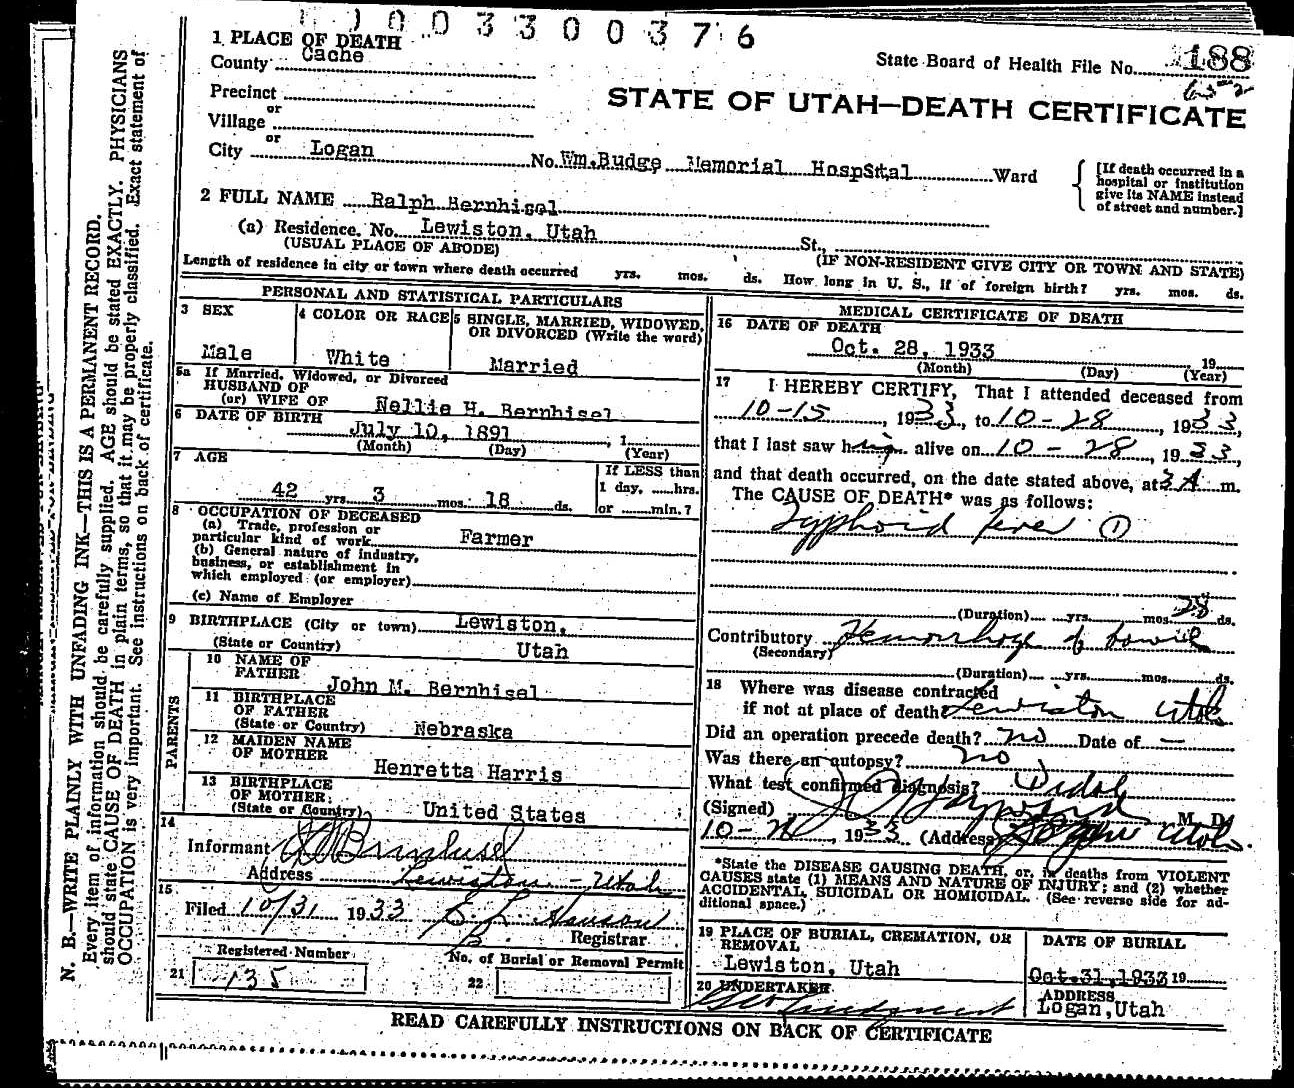 1003300376
1 PLACE OF DEATH
County Cache
State Board of Health File No. 188
Precinct
or
Village
STATE OF UTAH—DEATH CERTIFICATE
or
City Logan No. Wm.Budge Memorial HospStal Ward
[If death occurred in a hospital or institution give its NAME instead of street and number.]
2 FULL NAME Ralph Bernhisel
(a) Residence. No. Lewiston, Utah St.,
(USUAL PLACE OF ABODE) (IF NON-RESIDENT GIVE CITY OR TOWN AND STATE)
Length of residence in city or town where death occurred yrs. mos. ds. How long in U. S., if of foreign birth? yrs. mos. ds.
PERSONAL AND STATISTICAL PARTICULARS
3 SEX
Male
4 COLOR OR RACE
White
5 SINGLE, MARRIED, WIDOWED, OR DIVORCED (Write the word)
Married
5a If Married, Widowed, or Divorced
HUSBAND OF
(or) WIFE OF Nellie H. Bernhisel
6 DATE OF BIRTH
July 10, 1891 , 1
(Month) (Day) (Year)
7 AGE
42 yrs. 3 mos. 18 ds.
If LESS than
1 day, hrs.
or min.?
8 OCCUPATION OF DECEASED
(a) Trade, profession or
particular kind of work Farmer
(b) General nature of industry,
business, or establishment in
which employed (or employer)
(c) Name of Employer
9 BIRTHPLACE (City or town) Lewiston,
(State or Country) Utah
PARENTS
10 NAME OF
FATHER John M. Bernhisel
11 BIRTHPLACE
OF FATHER
(State or Country) Nebraska
12 MAIDEN NAME
OF MOTHER Henretta Harris
13 BIRTHPLACE
OF MOTHER
(State or Country) United States
14
Informant Bernhisel
Address Lewiston - Utah
15
Filed 10/31 1933 Hanson
Registrar
Registered Number
21 135
No. of Burial or Removal Permit
22
MEDICAL CERTIFICATE OF DEATH
16 DATE OF DEATH
Oct. 28, 1933 19
(Month) (Day) (Year)
17 I HEREBY CERTIFY, That I attended deceased from
10-15, 1933, to 10-28, 1933,
that I last saw him alive on 10-28, 1933,
and that death occurred, on the date stated above, at 3 A m.
The CAUSE OF DEATH* was as follows:
Typhoid fever ①
(Duration) yrs. mos. 28 ds.
Contributory Hemorrhage of bowel
(Secondary)
(Duration) yrs. mos. ds.
18 Where was disease contracted
if not at place of death? Lewiston Utah
Did an operation precede death? no Date of —
Was there an autopsy? no
What test confirmed diagnosis? Widal
(Signed) Hayward M. D.
10-28, 1933 (Address) Logan Utah.
*State the DISEASE CAUSING DEATH, or, in deaths from VIOLENT
CAUSES state (1) MEANS AND NATURE OF INJURY; and (2) whether
ACCIDENTAL, SUICIDAL OR HOMICIDAL. (See reverse side for ad-
ditional space.)
19 PLACE OF BURIAL, CREMATION, OR
REMOVAL
Lewiston, Utah
DATE OF BURIAL
Oct.31,1933 19
20 UNDERTAKER
ADDRESS
Logan,Utah
READ CAREFULLY INSTRUCTIONS ON BACK OF CERTIFICATE
N. B.—WRITE PLAINLY WITH UNFADING INK—THIS IS A PERMANENT RECORD.
Every item of information should be carefully supplied. AGE should be stated EXACTLY. PHYSICIANS
should state CAUSE OF DEATH in plain terms, so that it may be properly classified. Exact statement of
OCCUPATION is very important. See instructions on back of certificate.